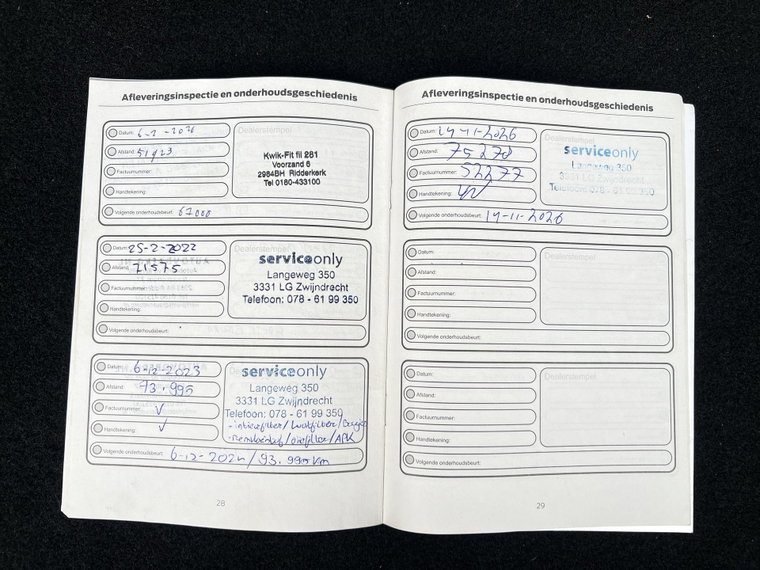 Afleveringsinspectie en onderhoudsgeschiedenis
Datum: 6-2-2021
Afstand: 51423
Factuurnummer:
Handtekening:
Volgende onderhoudsbeurt: 67000
Dealerstempel
Kwik-Fit fil 281
Voorzand 6
2984BH Ridderkerk
Tel 0180-433100
Datum: 25-2-2022
Afstand: 71575
Factuurnummer:
Handtekening:
Volgende onderhoudsbeurt:
Dealerstempel
serviceonly
Langeweg 350
3331 LG Zwijndrecht
Telefoon: 078 - 61 99 350
Datum: 6-12-2023
Afstand: 73.995
Factuurnummer: V
Handtekening: V
Volgende onderhoudsbeurt: 6-12-2024/93.995 km
serviceonly
Langeweg 350
3331 LG Zwijndrecht
Telefoon: 078 - 61 99 350
-interieurfilter/luchtfilter/
/oliefilter/APK
28
Afleveringsinspectie en onderhoudsgeschiedenis
Datum: 14-11-2026
Afstand: 75278
Factuurnummer: 52277
Handtekening:
Volgende onderhoudsbeurt: 14-11-2026
Dealerstempel
serviceonly
Langeweg 350
3331 LG Zwijndrecht
Telefoon: 078 - 61 99 350
Datum:
Afstand:
Factuurnummer:
Handtekening:
Volgende onderhoudsbeurt:
Dealerstempel
Datum:
Afstand:
Factuurnummer:
Handtekening:
Volgende onderhoudsbeurt:
Dealerstempel
29